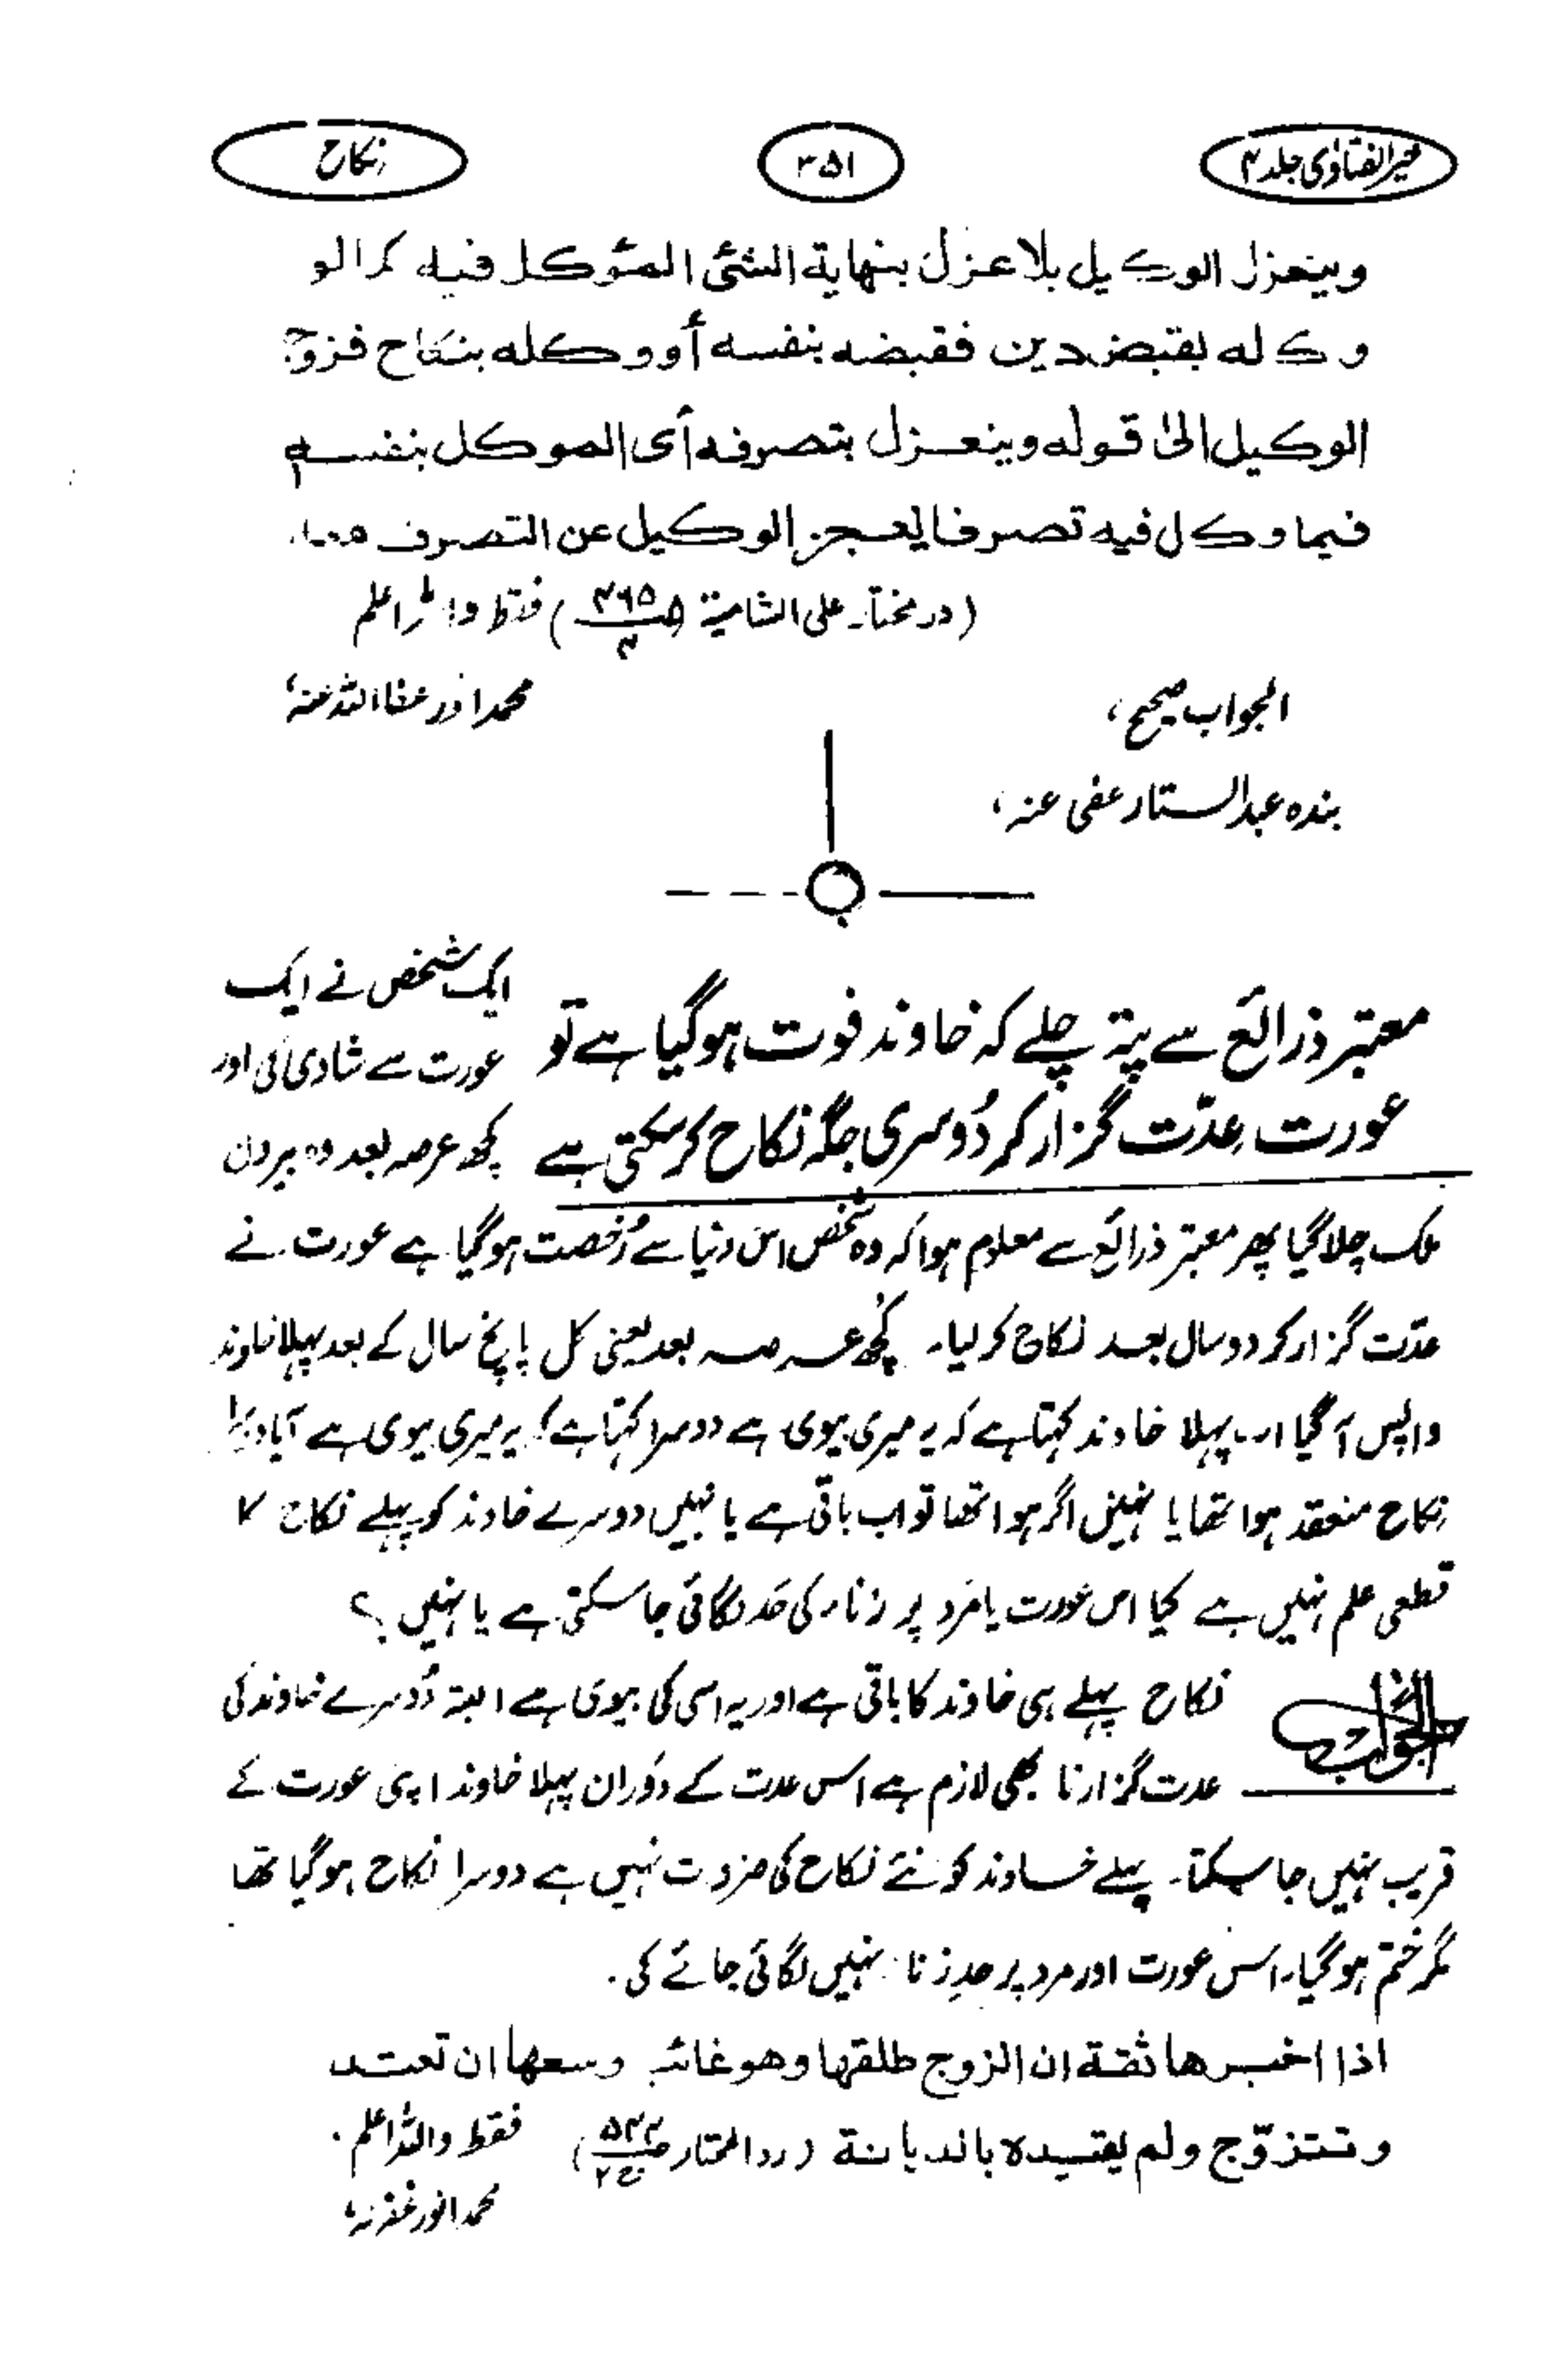 خیر الفتاوٰی جلد ۴
۳۵۱
نکاح
وينعزل الوكيل بلا عزل بنهاية الشئ المؤكل فيه كما لو
وكله بقبض دين فقبضه بنفسه أو وكله بنكاح فزوج
الوكيل الىٰ قوله وينعزل بتصرفه أى الموكل بنفسه
فيما وكل فيه تصرفا يعجز الوكيل عن التصرف معه
(در مختار علی الشامیة ص۴۶۵/۴) فقط واللہ اعلم
محمد انور عفا اللہ عنہ،
الجواب صحیح،
بندہ عبدالستار عفی عنہ،
معتبر ذرائع سے پتہ چلے کہ خاوند فوت ہوگیا ہے تو
عورت عدّت گزار کر دُوسری جگہ نکاح کر سکتی ہے
ایک شخص نے ایک
عورت سے شادی کی اور
کچھ عرصہ بعد وہ بیرون
ملک چلا گیا پھر معتبر ذرائع سے معلوم ہوا کہ وہ شخص اس دنیا سے رُخصت ہوگیا ہے عورت نے
عدّت گزار کر دو سال بعد نکاح کر لیا۔ کچھ عرصہ بعد یعنی کل پانچ سال کے بعد پہلا خاوند
واپس آگیا اب پہلا خاوند کہتا ہے کہ یہ میری بیوی ہے دوسرا کہتا ہے کہ یہ میری بیوی ہے آیا دوسرا
نکاح منعقد ہوا تھا یا نہیں اگر ہوا تھا تو اب باقی ہے یا نہیں دوسرے خاوند کو پہلے نکاح کا
قطعی علم نہیں ہے کیا اس عورت یا مَرد پر زنا، کی حَد لگائی جا سکتی ہے یا نہیں؟
الجواب
نکاح پہلے ہی خاوند کا باقی ہے اور یہ اسی کی بیوی ہے البتہ دُوسرے خاوند کی
عدت گزارنا بھی لازم ہے اس عدت کے دَوران پہلا خاوند اپنی عورت کے
قریب نہیں جا سکتا۔ پہلے خاوند کو نئے نکاح کی ضرورت نہیں ہے دوسرا نکاح ہوگیا تھا
مگر ختم ہوگیا۔ اس عورت اور مرد پر حدِ زنا نہیں لگائی جائے گی۔
اذا اخبرها ثقة ان الزوج طلقها وهو غائب وسعها ان تعتد
وتتزوّج ولم يقيده بالديانة (ردالمحتار ص۵۴۲ ج۲) فقط واللہ اعلم۔
محمد انور غفرلہ،